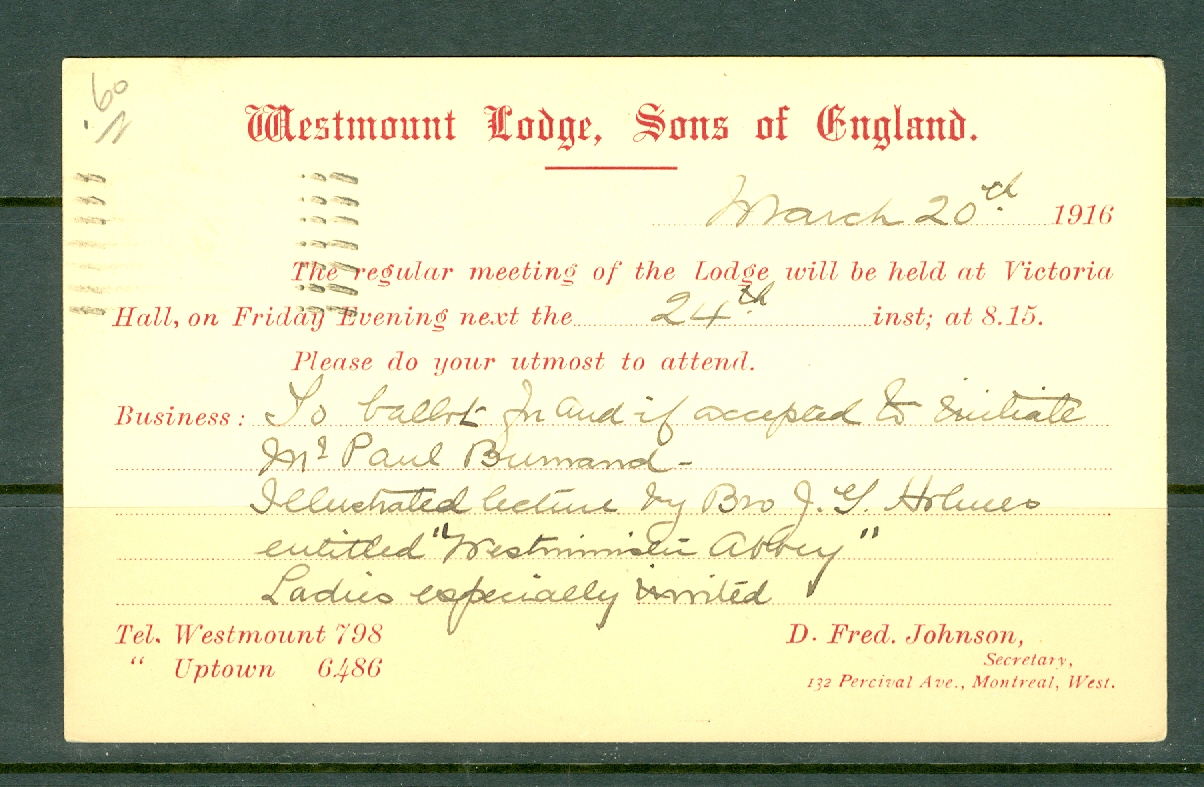 .60
Westmount Lodge, Sons of England.
March 20th 1916
The regular meeting of the Lodge will be held at Victoria
Hall, on Friday Evening next the 24th inst; at 8.15.
Please do your utmost to attend.
Business: To ballot for and if accepted to initiate
Mr Paul Burnand -
Illustrated lecture by Bro J. G. Holmes
entitled "Westminister Abbey"
Ladies especially invited
Tel. Westmount 798
" Uptown 6486
D. Fred. Johnson,
Secretary,
132 Percival Ave., Montreal, West.